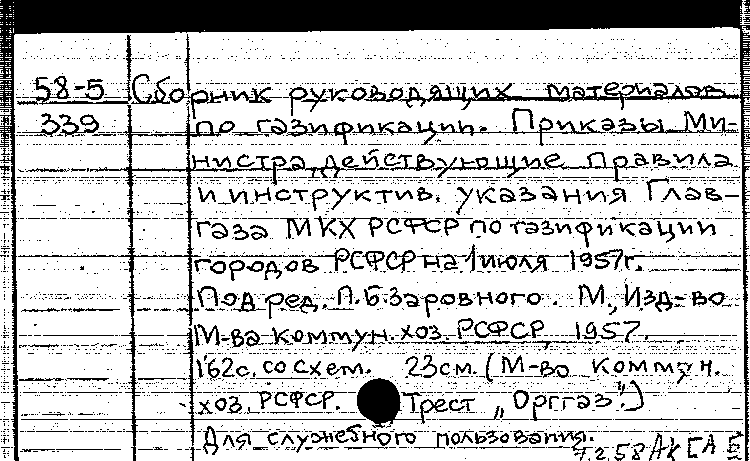 58-5 Сборник руководящих материалов
339 по газификации. Приказы Ми-
нистра, действующие правила
и инструктив. указания Глав-
газа МКХ РСФСР по газификации
городов РСФСР на 1 июля 1957г.
Под ред. П.Б.Заровного. М, Изд-во
М-ва коммун. хоз. РСФСР, 1957.
162с. со схем. 23см. (М-во коммун.
хоз. РСФСР. Трест „Оргgаз".)
Для служебного пользования.